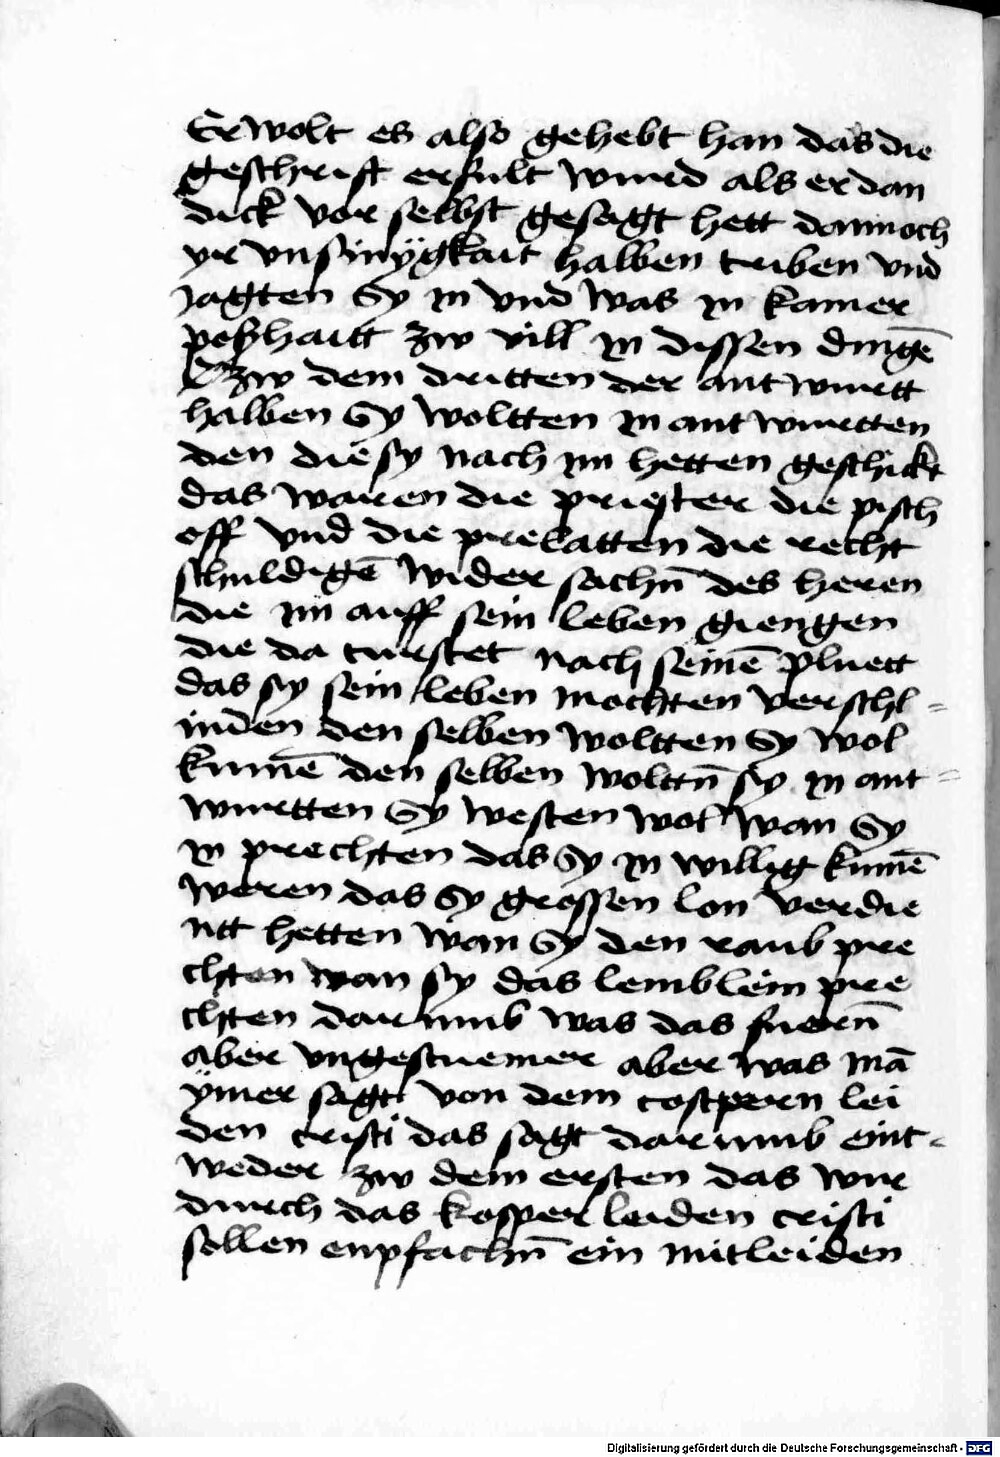 Er wolt es also gehebt han das die
geschrift erfult wurd als er dan
dick vor selbst gesagt hett dannoch
yr vnsinÿgkait halben triben vnd
jagten Sy in vnd was in kainer
poßhaitt zw vill in dissen dingē
Zzw dem dritten der antwurtt
halben Sy woltten in antwurtten
den die sy nach im hetten geschickt
das waren die priester die pisch
off vnd die prelatten die recht
schuldigē wider sachn̄ des heren
die im auff sein leben giengen
die da turstet nach seinē pluett
das sy sein leben mochten verschl=
inden den selben woltten Sy wol
kumē den selben wolttn̄ sy in ant=
wurtten Sy westen wol wan Sy
in prechten das Sy in willig kumē
weren das Sy grossen lon verdie
ntt hetten wan Sy den raub pre
chten wan sy das lemblein pre
chten darumb was das fuern̄
aber vngestuemer aber was mā
ÿmer sagt von dem costpern lei
den cristi das sagt darumb eint=
weder zw dem ersten das wir
durch das kosper leiden cristi
sollen enpfachn̄ ein mitleiden
Digitalisierung gefördert durch die Deutsche Forschungsgemeinschaft - DFG